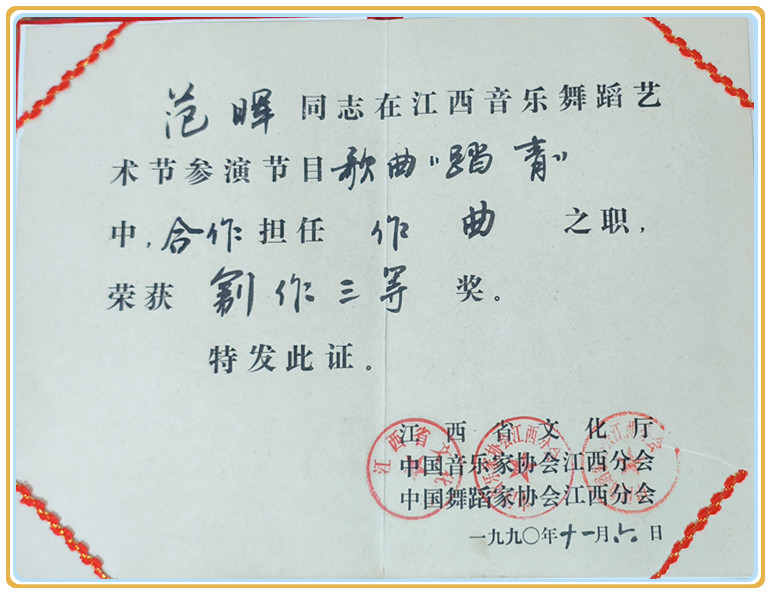 范晖同志在江西音乐舞蹈艺
术节参演节目歌曲“踏青”
中,合作担任 作曲 之职,
荣获 創作三等 奖。
特发此证。
江西省文化厅
中国音乐家协会江西分会
中国舞蹈家协会江西分会
一九九〇年十一月六日